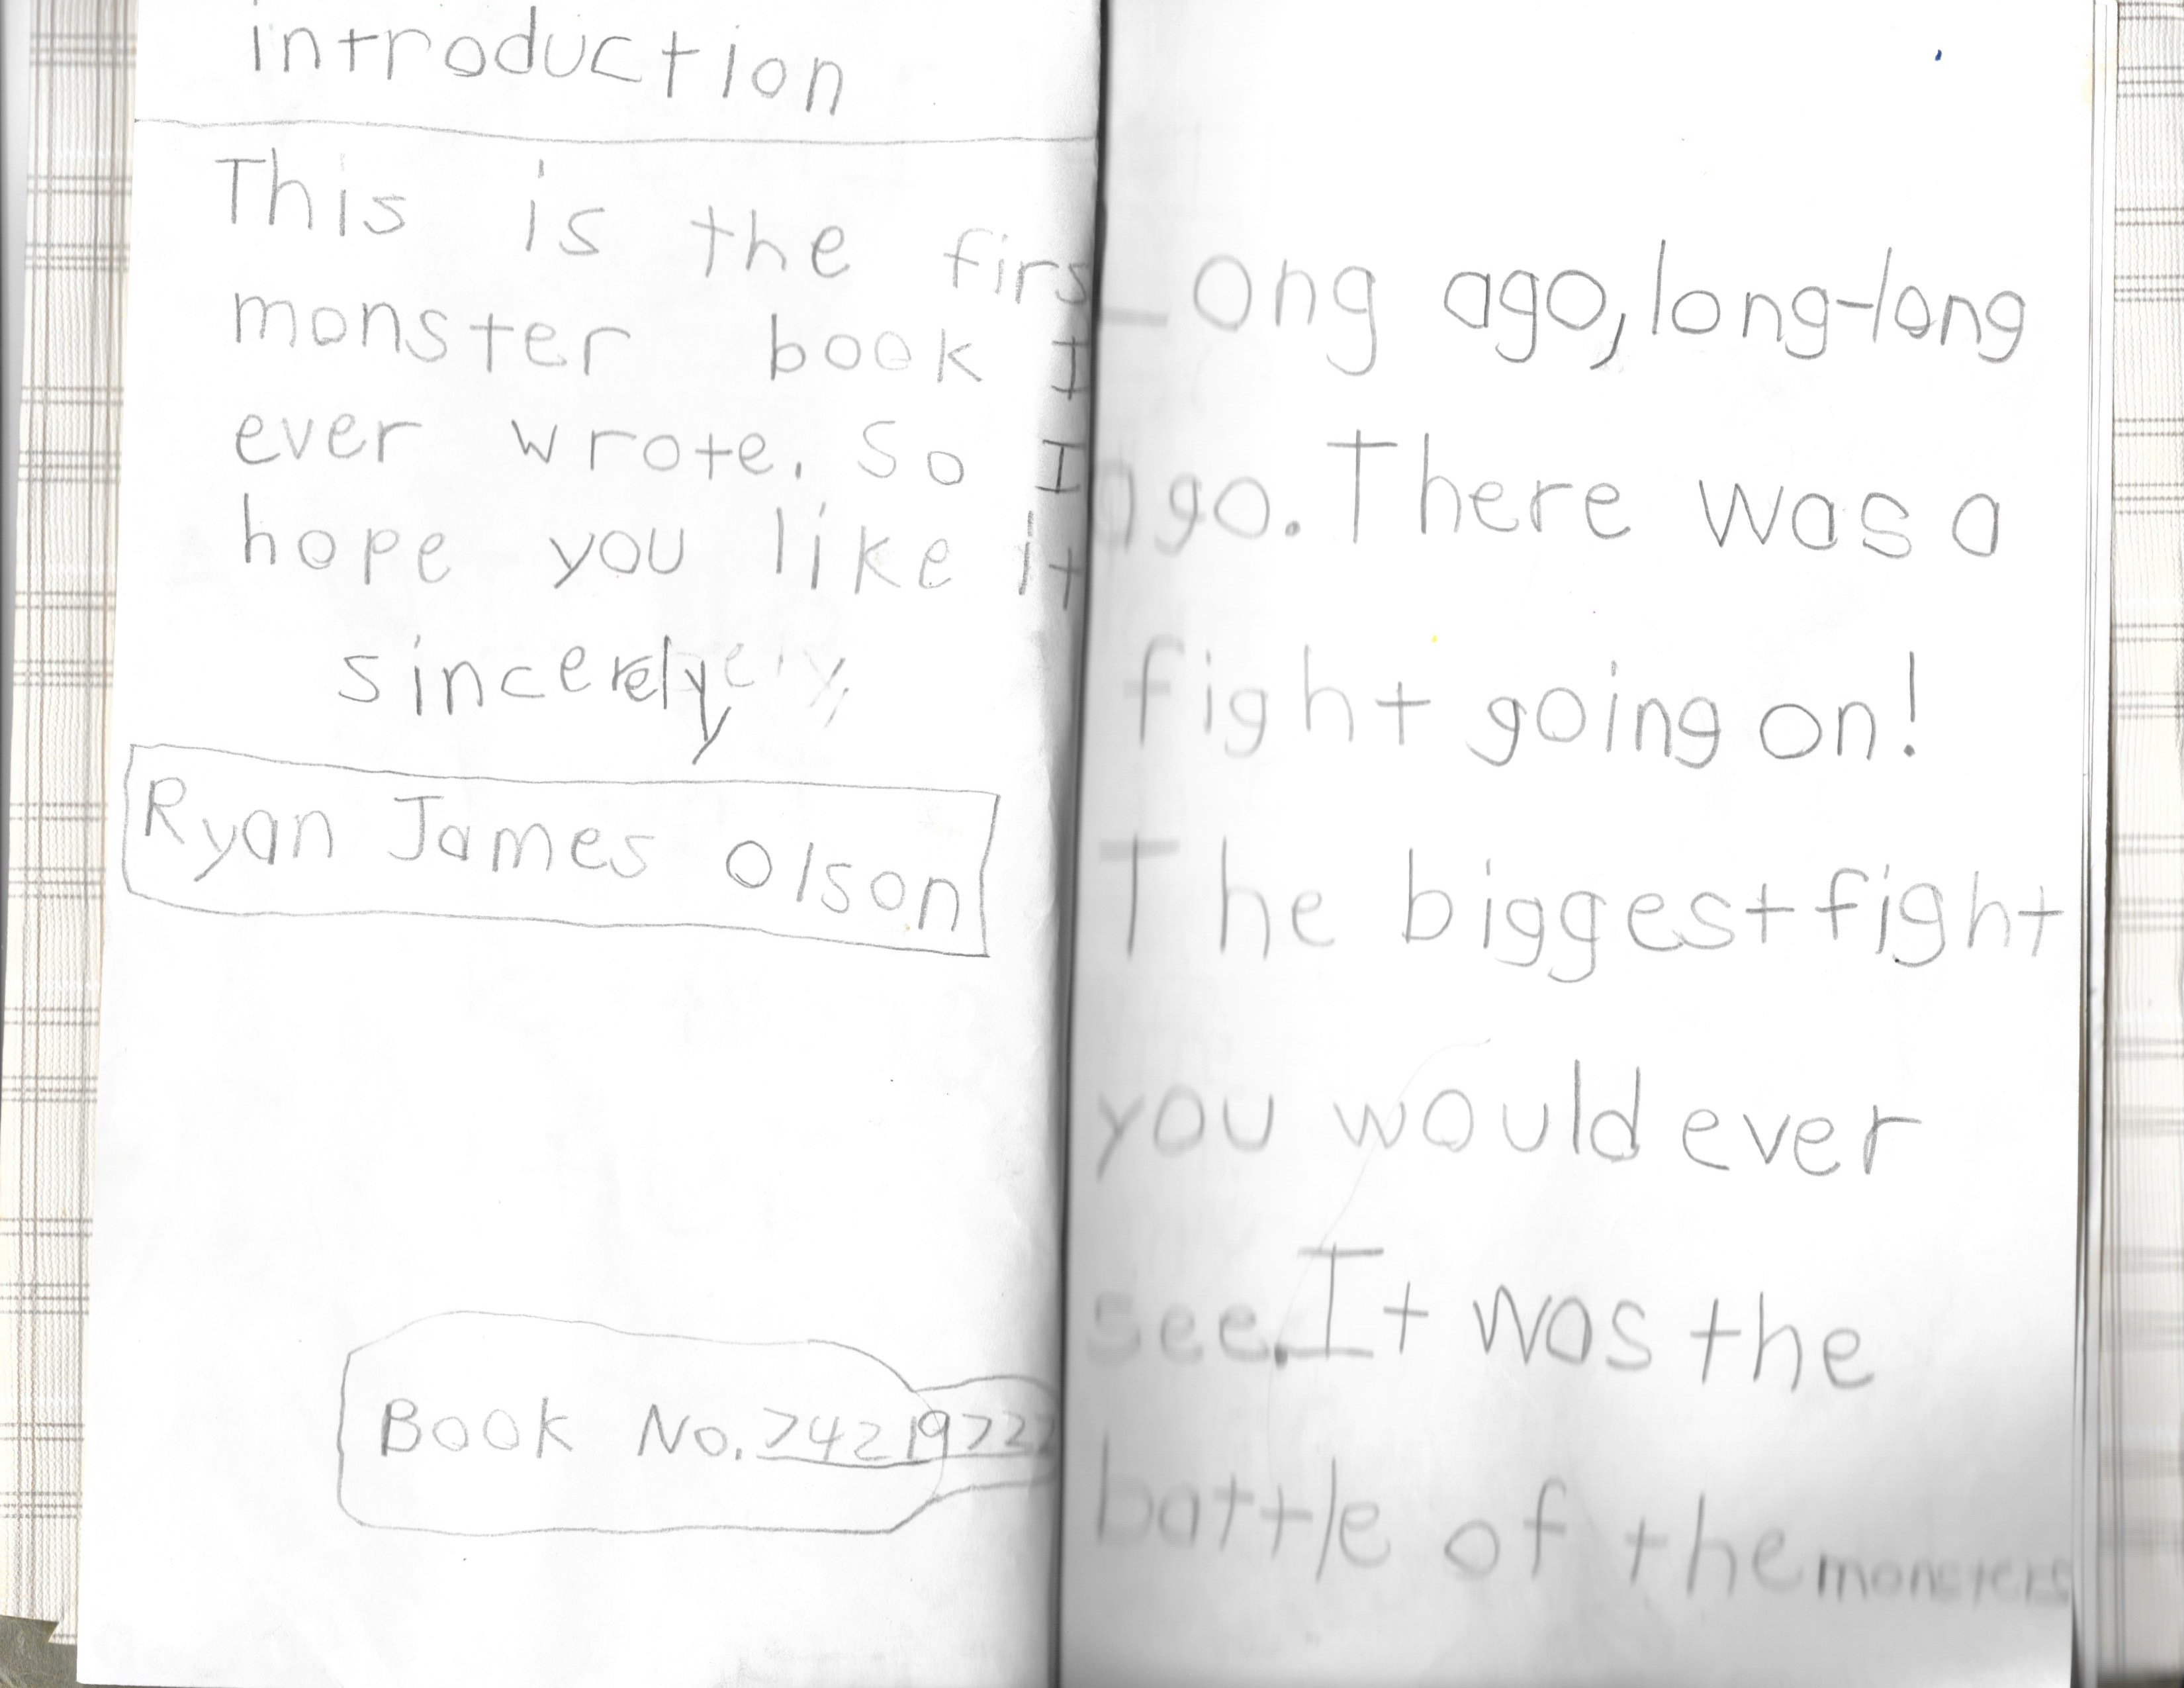 introduction
This is the firs
monster book I
ever wrote. So I
hope you like it
sincerely
Ryan James Olson
Book No.
Long ago, long-long
ago. There was a
fight going on!
The biggest fight
you would ever
see. It was the
battle of the monsters